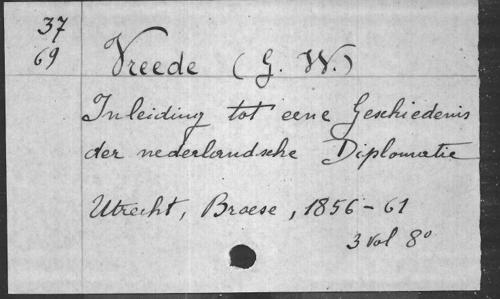 37
69
Vreede (G. W.)
Inleiding tot eene Geschiedenis
der nederlandsche Diplomatie
Utrecht, Broese, 1856-61
3 vol 8°